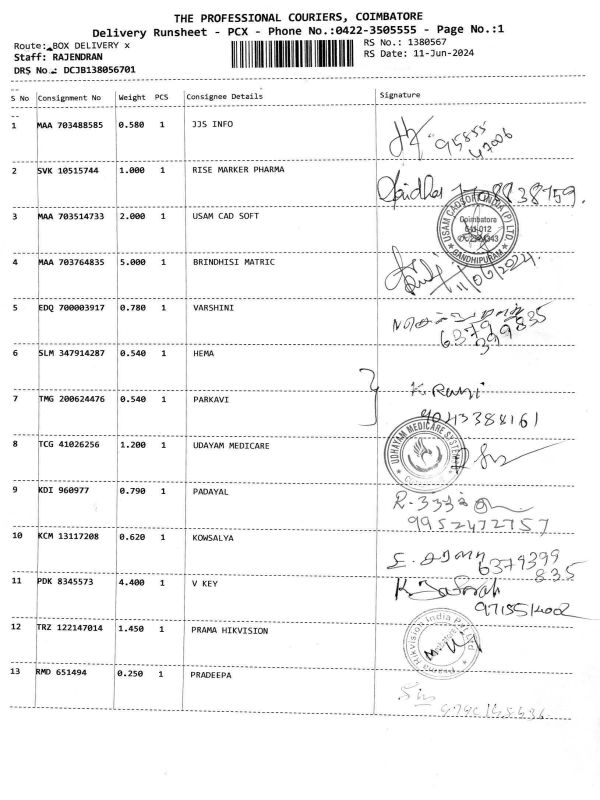 THE PROFESSIONAL COURIERS, COIMBATORE
Delivery Runsheet - PCX - Phone No.:0422-3505555 - Page No.:1
Route: BOX DELIVERY x
RS No.: 1380567
Staff: RAJENDRAN
RS Date: 11-Jun-2024
DRS No.: DCJB138056701
S No Consignment No Weight PCS Consignee Details Signature
1 MAA 703488585 0.580 1 JJS INFO
95855
47006
2 SVK 10515744 1.000 1 RISE MARKER PHARMA
3 MAA 703514733 2.000 1 USAM CAD SOFT
USAM CADSOFT INDIA (P) LTD.
Coimbatore
641-012
GANDHIPURAM
4 MAA 703764835 5.000 1 BRINDHISI MATRIC
11/06/2024.
5 EDQ 700003917 0.780 1 VARSHINI
6379
399835
6 SLM 347914287 0.540 1 HEMA
7 TMG 200624476 0.540 1 PARKAVI
K. Rani
9043388161
8 TCG 41026256 1.200 1 UDAYAM MEDICARE
UDHAYAM MEDICARE SYSTEM
9 KDI 960977 0.790 1 PADAYAL
9952472757
10 KCM 13117208 0.620 1 KOWSALYA
6379399
835
11 PDK 8345573 4.400 1 V KEY
12 TRZ 122147014 1.450 1 PRAMA HIKVISION
Prama Hikvision India Pvt Ltd
13 RMD 651494 0.250 1 PRADEEPA